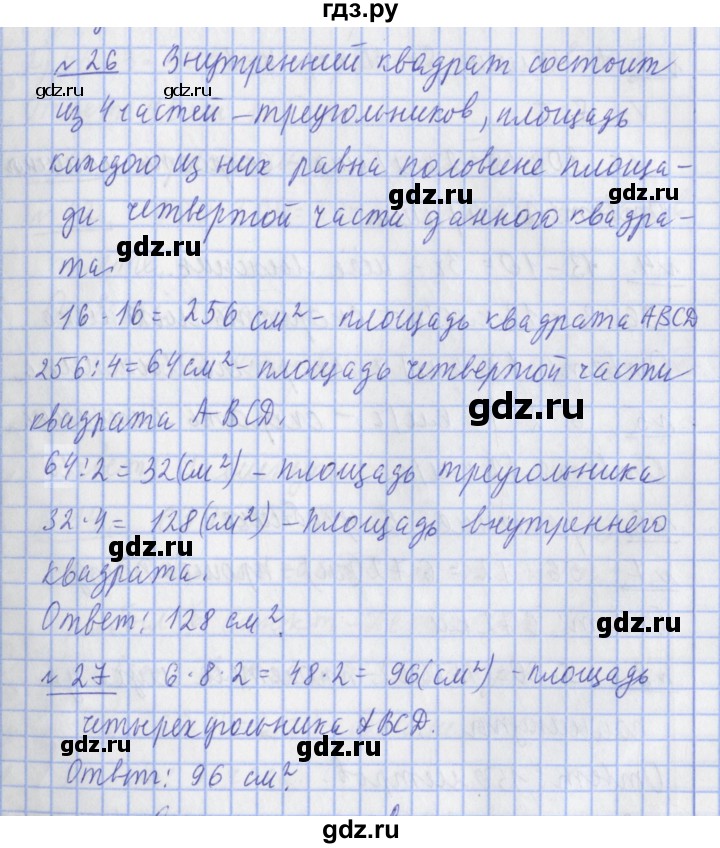 гдз.ру
№ 26 Внутренний квадрат состоит
gdz.ru gdz.ru
из 4 частей – треугольников, площадь
каждого из них равна половине площа-
gdz.ru
ди четвертой части данного квадра-
gdz.ru
та.
16 · 16 = 256 см² – площадь квадрата ABCD
256 : 4 = 64 см² – площадь четвертой части
gdz.ru
квадрата ABCD.
64 : 2 = 32 (см²) – площадь треугольника
32 · 4 = 128 (см²) – площадь внутреннего
gdz.ru
квадрата.
Ответ: 128 см².
gdz.ru
№ 27 6 · 8 : 2 = 48 · 2 = 96 (см²) – площадь
четырехугольника ABCD.
gdz.ru
Ответ: 96 см².
gdz.ru